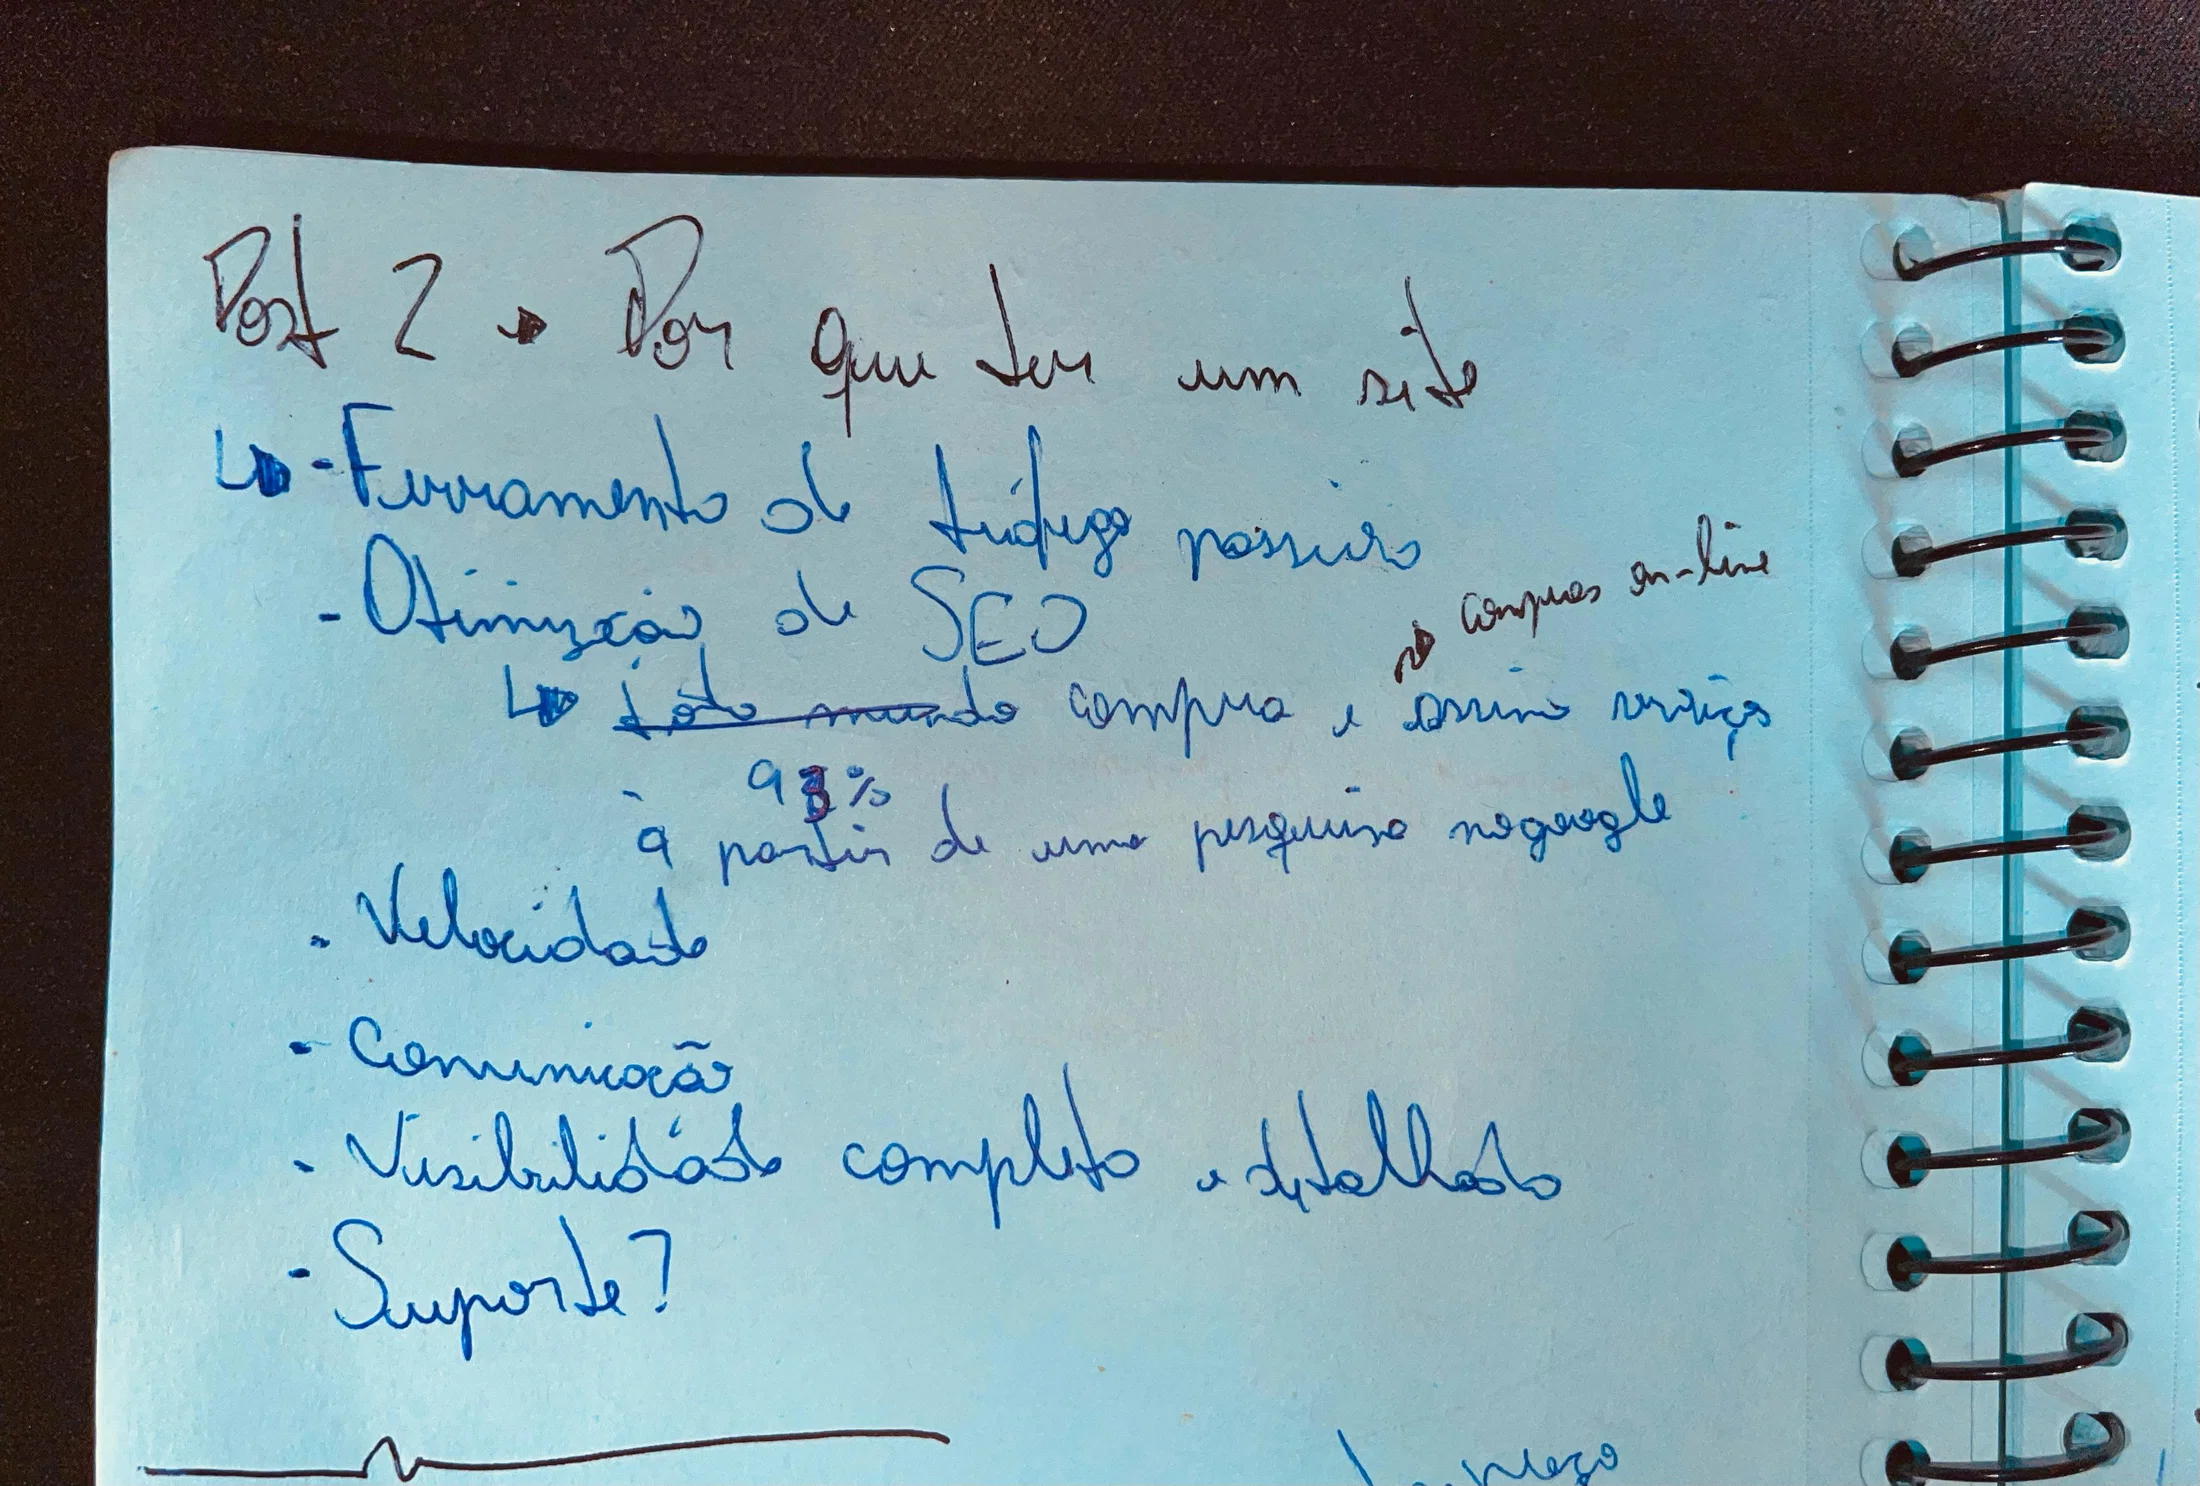 Post 2 → Por que ter um site
↳ - Ferramenta de tráfego passivo
- Otimização de SEO
→ compras on-line
↳ todo mundo compra e assina serviços
- 93%
a partir de uma pesquisa no google
- Velocidade
- Comunicação
- Visibilidade completa e detalhada
- Suporte?